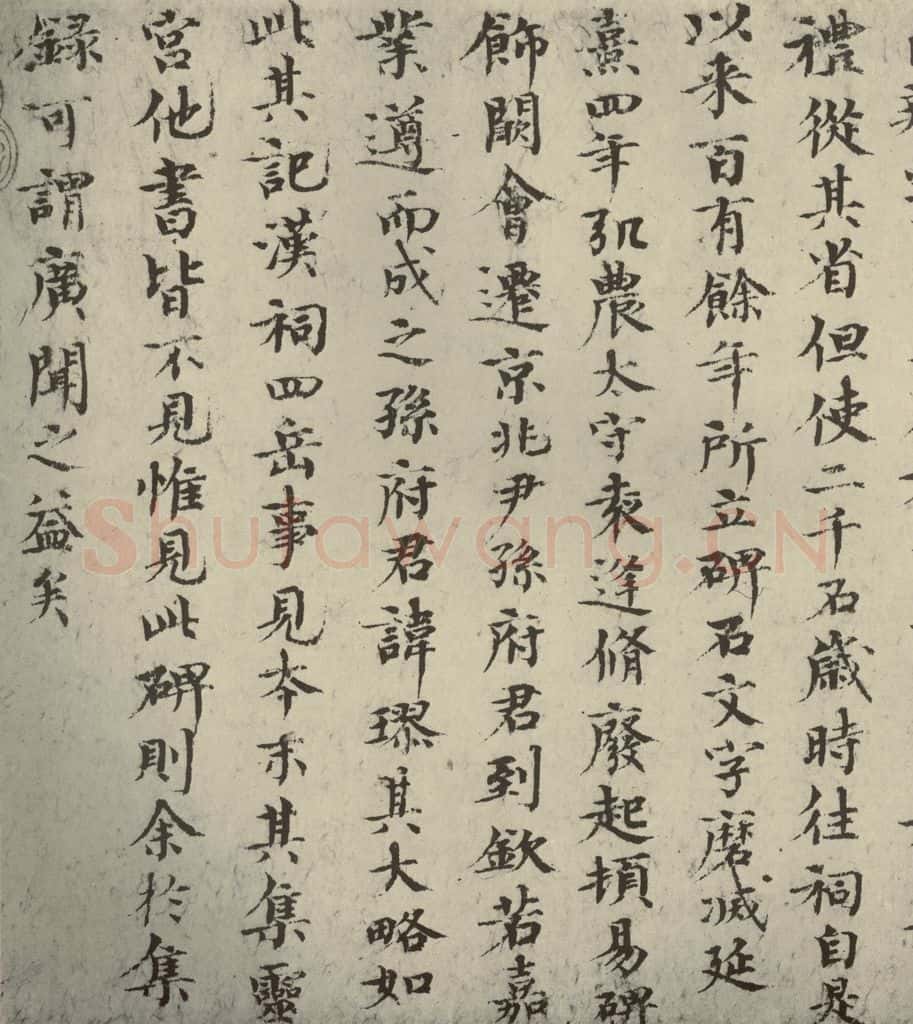 禮從其省但使二千石歲時往祠自是
以来百有餘年所立碑石文字磨滅延
熹四年弘農太守袁逢脩廢起頓易碑
飾闕會遷京兆尹孫府君到欽若嘉
業遵而成之孫府君諱璆其大略如
此其記漢祠四岳事見本末其集靈
宫他書皆不見惟見此碑則余於集
録可謂廣聞之益矣
Shufawang.CN